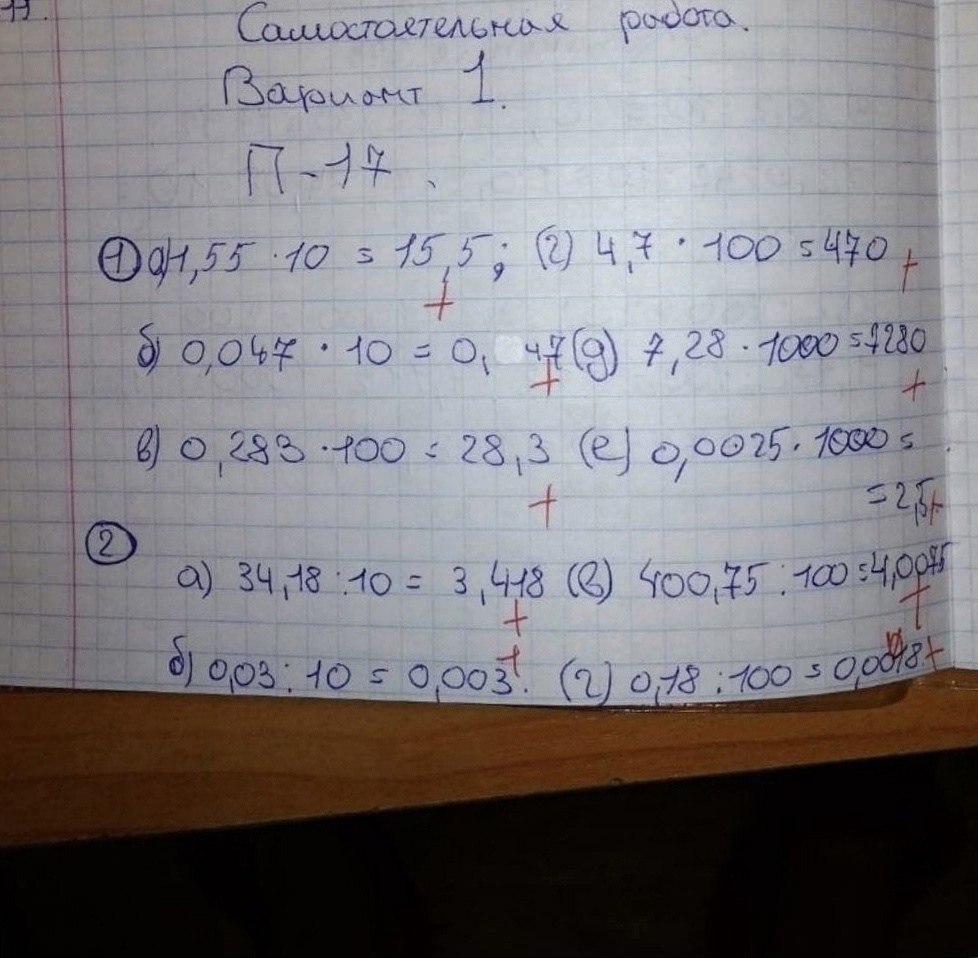 Самостоятельная работа.
Вариант 1.
П-17.
① а) 1,55 · 10 = 15,5; (г) 4,7 · 100 = 470
+ +
б) 0,047 · 10 = 0, 47 (д) 7,28 · 1000 = 7280
+ +
в) 0,283 · 100 = 28,3 (е) 0,0025 · 1000 =
+ = 2,5 +
②
а) 34,18 : 10 = 3,418 (в) 400,75 : 100 = 4,0075
+ +
б) 0,03 : 10 = 0,003. + (г) 0,18 : 100 = 0,0018 +